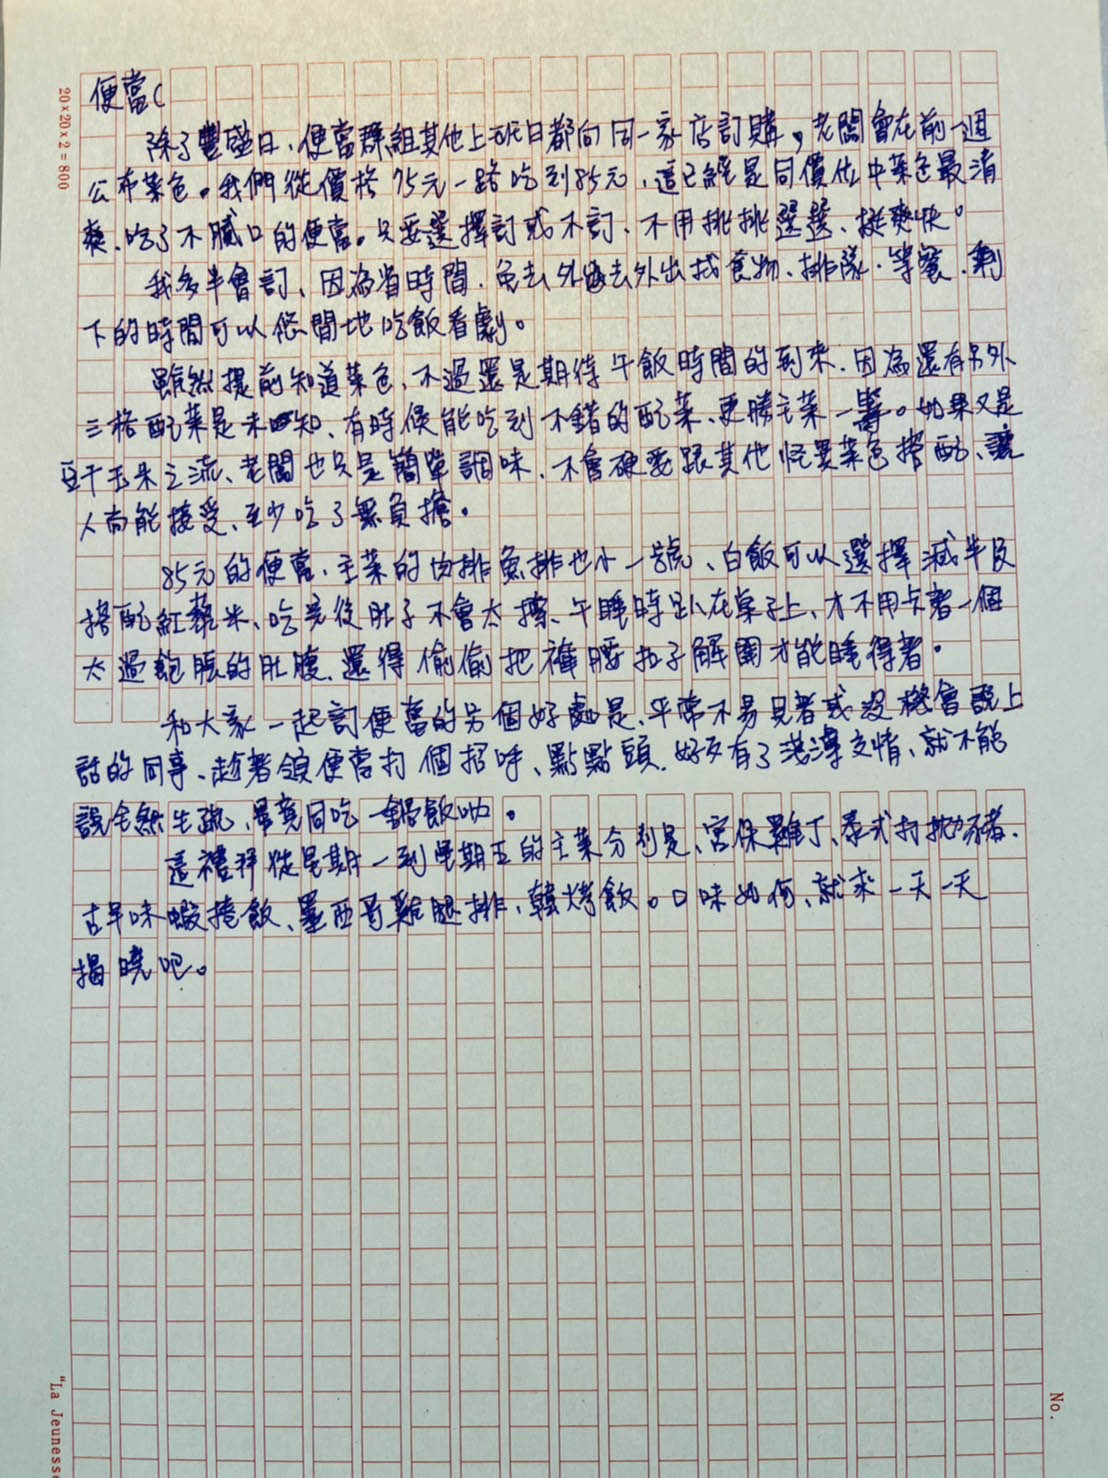 便當(
除了豐盛日、便當群組其他上班日都向同一家店訂購，老闆會在前一週
公布菜色。我們從價格75元一路吃到85元，這已經是同價位中菜色最清
爽、吃了不膩口的便當。只要選擇訂或不訂、不用挑挑選選、挺爽快。
我多半會訂、因為省時間、免去外出找食物、排隊、等餐、剩
下的時間可以悠閒地吃飯看劇。
雖然提前知道菜色、不過還是期待午飯時間的到來、因為還有另外
三格配菜是未知、有時候能吃到不錯的配菜、更勝主菜一籌。如果又是
豆干玉米之流、老闆也只是簡單調味、不會硬要跟其他怪異菜色搭配、讓
人尚能接受、至少吃了無負擔。
85元的便當、主菜的肉排魚排也小一號、白飯可以選擇減半及
搭配紅藜米、吃完後肚子不會太撐、午睡時趴在桌子上、才不用卡著一個
太過飽脹的肚腹、還得偷偷把褲腰扣子解開才能睡得著。
和大家一起訂便當的另個好處是、平常不易見著或沒機會說上
話的同事、趁著領便當打個招呼、點點頭、好歹有了淺薄交情、就不能
說全然生疏、畢竟同吃一鍋飯呦。
這禮拜從星期一到星期五的主菜分別是、宮保雞丁、泰式打拋豬、
古早味蝦捲飯、墨西哥雞腿排、韓烤飯。口味如何、就求一天一天
揭曉吧。
20×20×2=800
No.
"La Jeuness